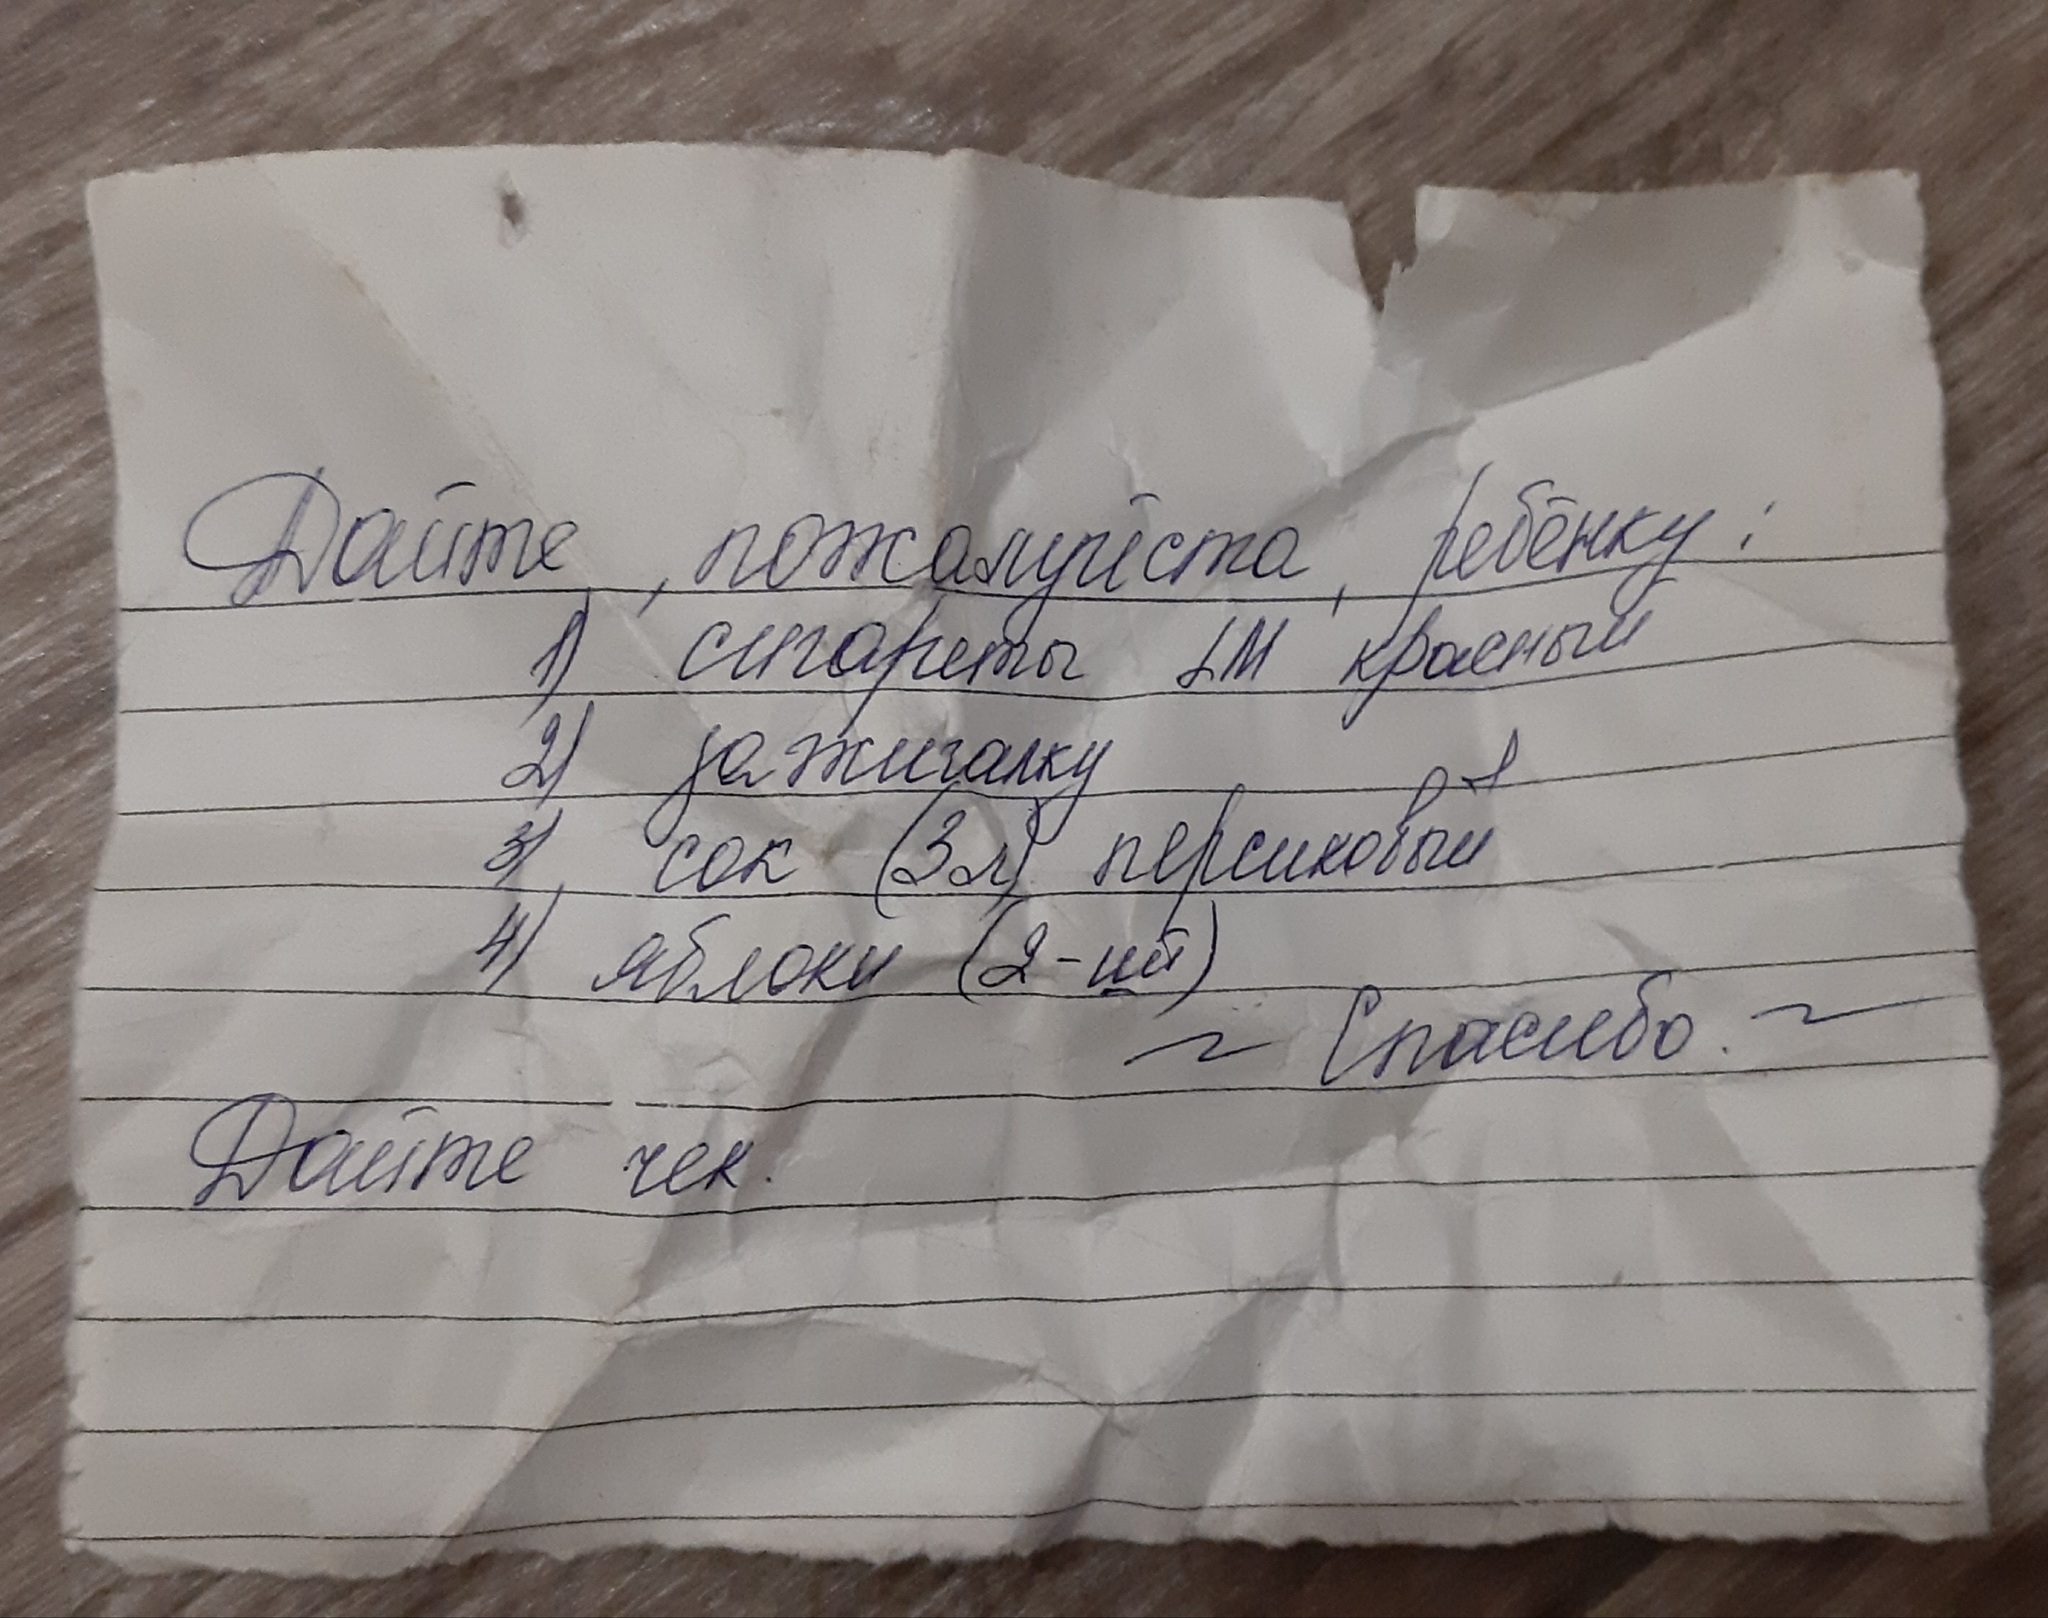 Дайте, пожалуйста, ребёнку:
1) сигареты LM красный
2) зажигалку
3) сок (3л) персиковый
4) яблоки (2-шт)
~ Спасибо. ~
Дайте чек.